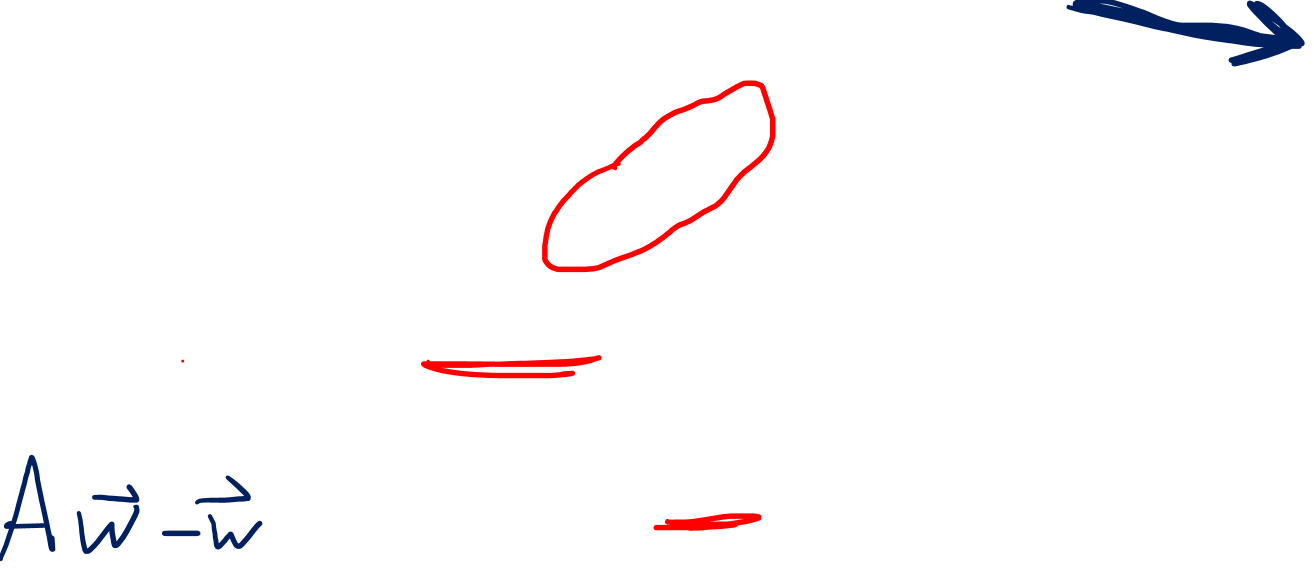 A\vec{w} - \vec{w}